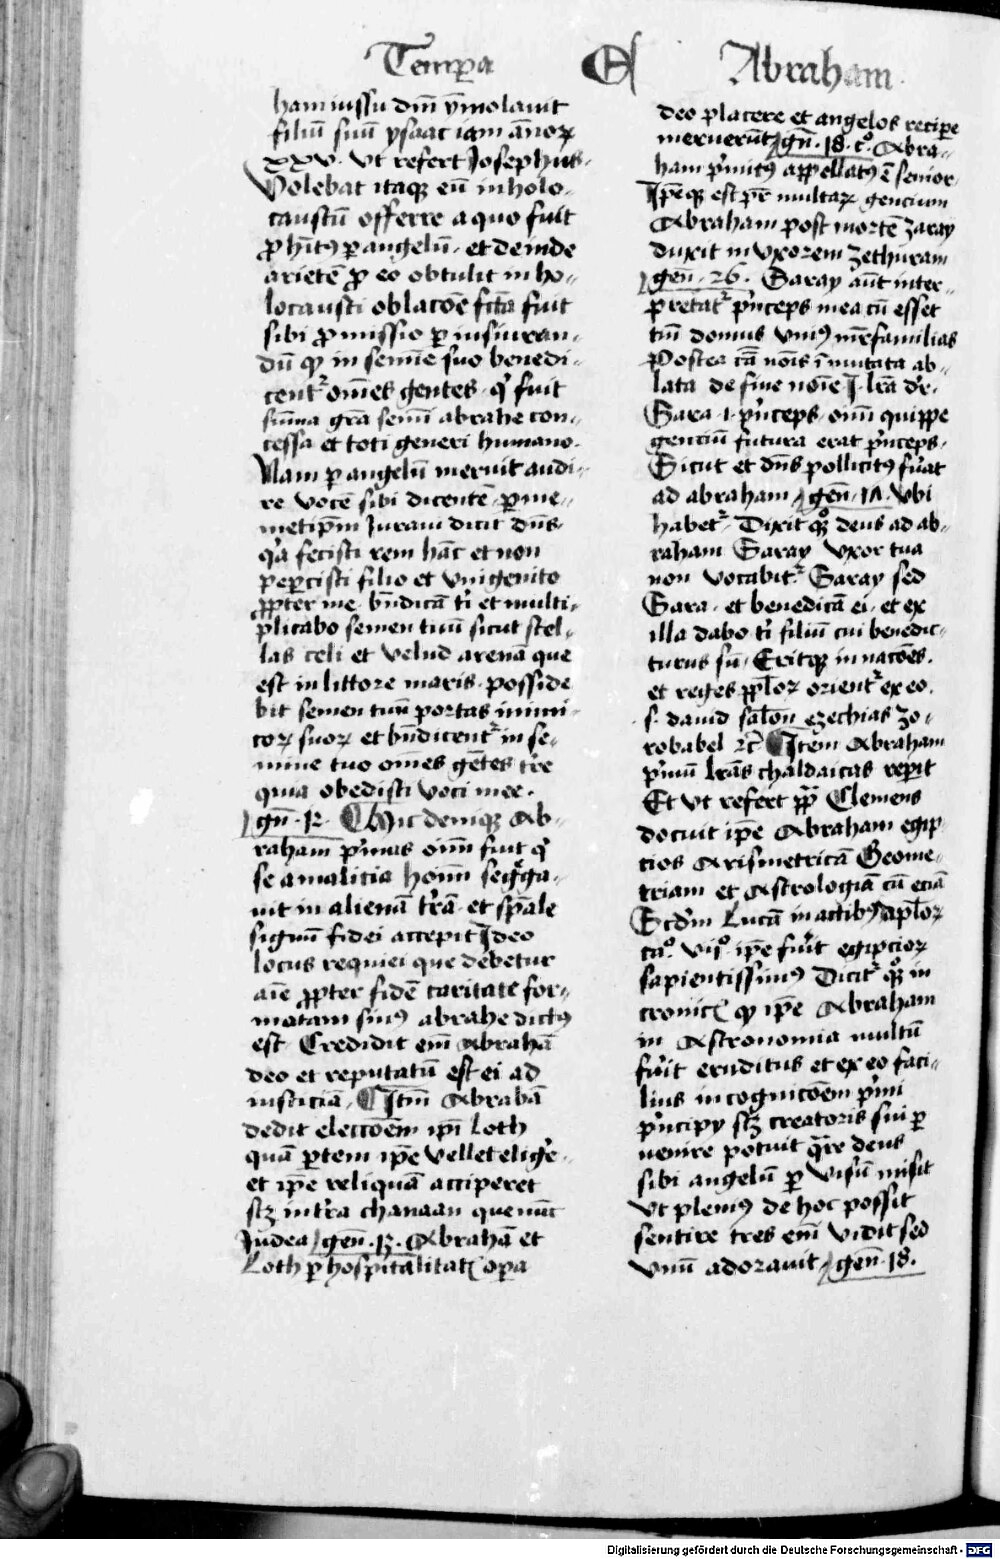 Tempa Et Abraham
ham iussu dnī ȳmolauit
filiū suū ysaac iam ānoꝝ
xxv. vt refert Josephus.
Volebat itaqꝫ eū in holo-
caustū offerre a quo fuit
ꝓhītꝰ ꝑ angelū. et deinde
arietē ꝓ eo obtulit in ho-
locausti oblacōe fcā fuit
sibi ꝓmissio ꝑ iusiuran-
dū qꝫ in semīe suo benedi-
centʳ om̄es gentes. qͥ fuit
sūma grā semī abrahe con-
cessa et toti generi humano.
Nam ꝑ angelū meruit audi-
re vocē sibi dicentē. ꝑ me-
metipm̄ Juraui dicit dn̄s
qͥa fecisti rem hāc et non
peꝑcisti filio et vnigenito
ꝓpter me. bn̄dicā tͥ et multi-
plicabo semen tuū sicut stel-
las celi et velud arenā que
est in littore maris. posside
bit semen tuū portas inimi
coꝝ suoꝝ et bn̄dicentʳ in se-
mine tuo om̄es gētes tͬre
quia obedisti voci mee.
gn̄. 12. Hic deniqꝫ Ab-
raham pͥmus om̄m fuit qͥ
se a malicia hoīm segͤga-
uit in alienā tͬrā. et spāle
signū fidei accepit Ideo
locus requiei que debetur
aīe ꝓpter fidē caritate for-
matam sinꝰ abrahe dictꝰ
est. Credidit em̄ Abrahā
deo et reputatū est ei ad
iusticiā. Itm̄ Abrahā
dedit eleccōem ipī Loth
quā ꝑtem ipē vellet eligͤ-
et ipē reliquā acciperet
scꝫ in tͬra chanaan que nūc
Judea gen̄. 13. Abrahā et
Loth ꝑ hospitalitatꝭ oꝑa
deo placere et angelos reciꝑe
meruerūt gn̄. 18. cͦ. Abra-
ham pͥmitꝰ appellatꝰ ē senior
Ipēqꝫ est pͬ multaꝝ gencium
Abraham post mortē zaray
duxit in vxorem zethuram
gen̄. 26. Saray aūt inter-
pretatʳ pͥnceps mea cū esset
tm̄ domus vniꝰ mr̄familias
Postea cā nois īmutata ab-
lata de fine noīe I. lrā dͬe.
Sara .i. pͥnceps. om̄ quippe
genciū futura erat pͥnceps.
Sicut et dn̄s pollicitꝰ fuͤat
ad abraham gen̄. 17. vbi
habetʳ. Dixit qꝫ deus ad ab-
raham Saray vxor tua
non vocabitʳ Saray sed
Sara. et benedicā ei. et ex
illa dabo tͥ filiū cui benedic-
turus sū. Eritqꝫ in nacōes.
et reges ppl̄oꝝ orientʳ ex eo.
.s. dauid salōn ezechias zo-
robabel ⁊c̄. Item Abraham
pͥmū lrās chaldaicas reꝑit
Et vt refert pp̄ Clemens
docuit ipē Abraham egip
cios Arismetricā Geome-
triam et Astrologiā cū eciā
Scdm̄ Lucā in actibꝰ apl̄oꝝ
cͣ. viiͦ. ipē fuͥit egipcioꝝ
sapientissimꝰ Dicitʳ qꝫ in
cronicꝭ qꝫ ipē Abraham
in Astronomia multū
fuͥit eruditus et ex eo faci-
lius in cognicōem pͥmi
pͥncipy scꝫ creatoris sui ꝑ
uenire potuit qͣre deus
sibi angelū ꝑ visū misit
vt pleniꝰ de hoc possit
sentire tres em̄ vidit sed
vnū adorauit gen̄. 18.
Digitalisierung gefördert durch die Deutsche Forschungsgemeinschaft - DFG